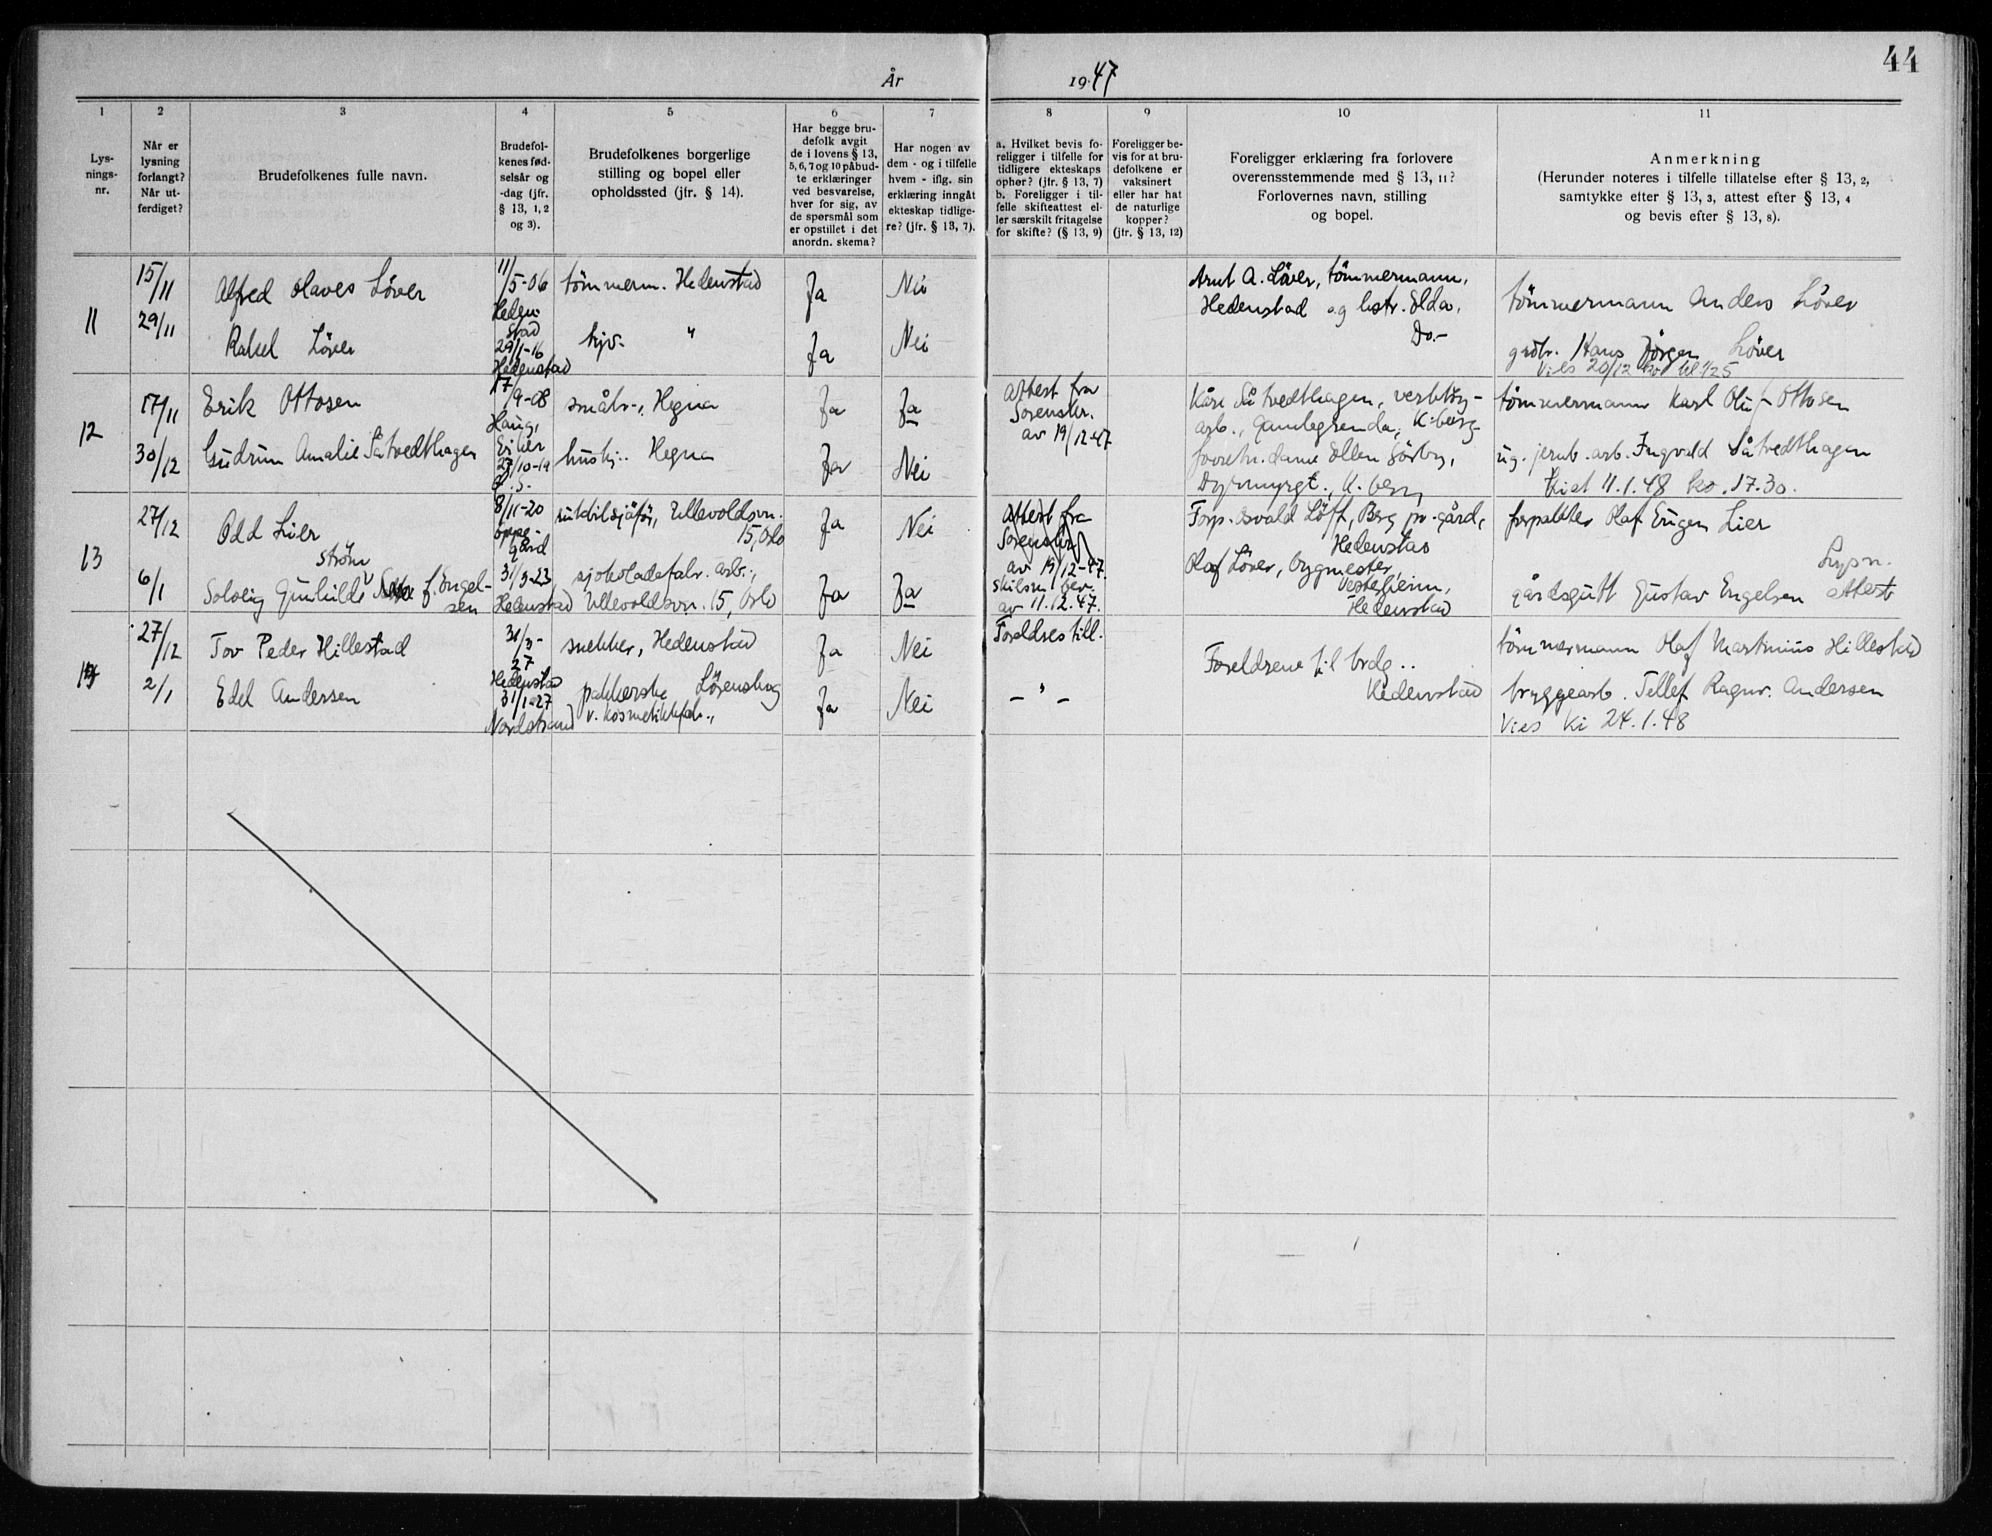 44
År 1947
1 2 3 4 5 6 7 8 9 10 11
Lys-
nings-
nr.
Når er
lysning
forlangt?
Når ut-
ferdiget?
Brudefolkenes fulle navn.
Brudefol-
kenes fød-
selsår og
-dag (jfr.
§ 13, 1, 2
og 3).
Brudefolkenes borgerlige
stilling og bopel eller
opholdssted (jfr. § 14).
Har begge bru-
defolk avgit
de i lovens § 13,
5, 6, 7 og 10 påbud-
te erklæringer
ved besvarelse,
hver for sig, av
de spørsmål som
er opstillet i det
anordn. skema?
Har nogen av
dem - og i tilfelle
hvem - iflg. sin
erklæring inngåt
ekteskap tidlige-
re? (jfr. § 13, 7).
a. Hvilket bevis fo-
religger i tilfelle for
tidligere ekteskaps
ophør? (jfr. § 13, 7)
b. Foreligger i til-
felle skifteattest el-
ler særskilt fritagelse
for skifte? (§ 13, 9)
Foreligger be-
vis for at bru-
defolkene er
vaksinert
eller har hat
de naturlige
kopper?
(jfr. § 13, 12)
Foreligger erklæring fra forlovere
overensstemmende med § 13, 11?
Forlovernes navn, stilling
og bopel.
Anmerkning
(Herunder noteres i tilfelle tillatelse efter § 13, 2,
samtykke efter § 13, 3, attest efter § 13, 4
og bevis efter § 13, 8).
11
15/11
29/11
Alfred Olaves Löver
Rakel Löver
11/5-06
Heden-
stad
29/1-16
Hedenstad
tömmerm. Hedenstad
hjv. "
Ja
Ja
Nei
Nei
Arnt A. Löver, tömmermann,
Hedenstad og hstr. Olda.
Do.-
tömmermann Anders Löver
grdbr. Hans Jörgen Löver
Vies 20/12
12
17/11
30/12
Erik Ottosen
Gudrun Amalie Såtvedthagen
17/9-08
Haug,
Eiker
27/10-19
småbr., Hegna
hushj.. Hegna
Ja
Ja
Ja
Nei
Attest fra
Sorenskr.
av 19/12-47
Kåre Såtvedthagen, verktöy-
arb., Gamlegrenda, K-berg
forretn.dame Ellen Sörby,
Dyrmyrgt., K.berg
tömmermann Karl Oluf Ottosen
ug. jernb.arb. Ingvald Såtvedthagen
Viet 11.1.48 ko. 17.30.
13
27/12
6/1
Odd Lier
Ström
Solveig Gunhilde f. Engel-
sen
8/11-20
Oppe-
gård
31/3-23
Hedenstad
rutebilsjåför, Ullevoldsvn.
15, Oslo
sjokoladefabr. arb.,
Ullevoldsvn. 15, Oslo
Ja
Ja
Nei
Ja
Attest fra
Sorenskr.
av 19/12-47.
skilsm. bev.
av 11.12.47.
Forp. Osvald Löft, Berg pr.gård,
Hedenstad
Olaf Löver, bygmester,
Vesteheim,
Hedenstad
forpakter Olaf Eugen Lier
Lysn.
gårdsgutt Gustav Engelsen Attest
14
27/12
2/1
Tov Peder Hillestad
Edel Andersen
31/3-
27
Hedenstad
31/1-27
Nordstrand
snekker, Hedenstad
pakkerske Lörenskog
v. kosmetikkfabr.,
Ja
Ja
Nei
Nei
Foreldres till.
— " —
Foreldrene til brdg..
Hedenstad
tömmermann Olaf Martinius Hillestad
bryggearb. Tellef Ragnv. Andersen
Vies Ki 24.1.48